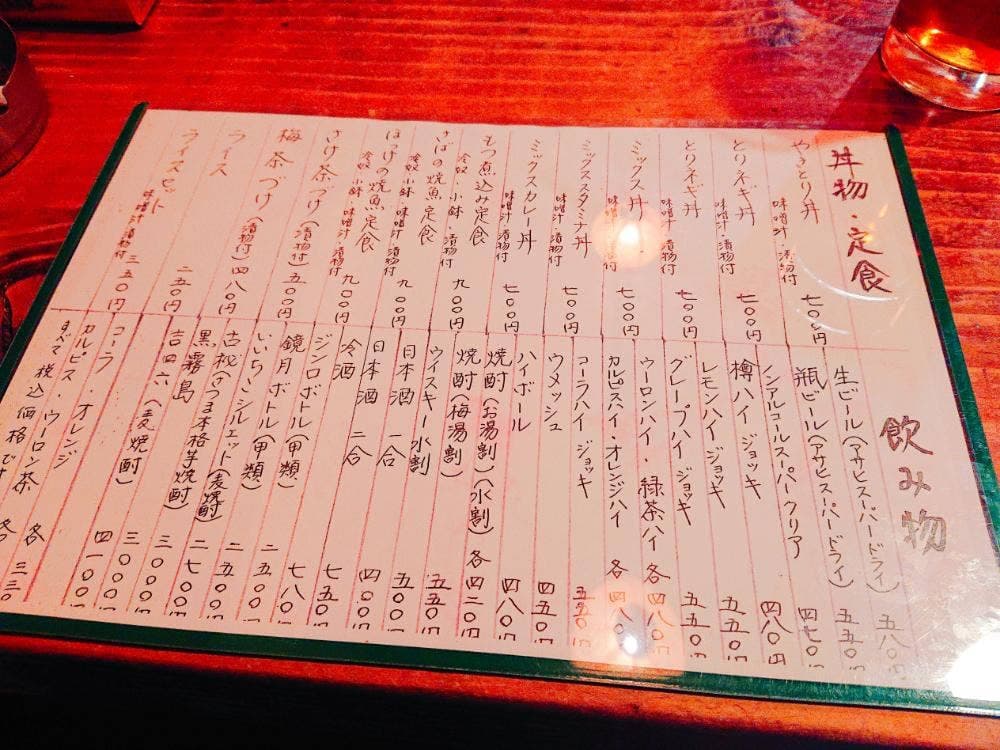 丼物・定食
やきとり丼
味噌汁・漬物付 七〇〇円
とりネギ丼
味噌汁・漬物付 七〇〇円
とりネギ丼
味噌汁・漬物付 七〇〇円
ミックス丼
味噌汁・漬物付 七〇〇円
ミックススタミナ丼
味噌汁・漬物付 七〇〇円
ミックスカレー丼
味噌汁・漬物付 七〇〇円
もつ煮込み定食
冷奴・小鉢・漬物付 九〇〇円
さばの焼魚定食
冷奴・小鉢・味噌汁・漬物付 九〇〇円
ほっけの焼魚定食
冷奴・小鉢・味噌汁・漬物付 九〇〇円
さけ茶づけ(漬物付)五〇〇円
梅茶づけ(漬物付)四八〇円
ライス 二五〇円
ライスセット
味噌汁・漬物付 三五〇円
飲み物
生ビール(アサヒスーパードライ) 五八〇円
瓶ビール(アサヒスーパードライ) 五五〇円
ノンアルコールスーパークリア 四七〇円
樽ハイ ジョッキ 四八〇円
レモンハイ ジョッキ 五五〇円
グレープハイ ジョッキ 五五〇円
ウーロンハイ・緑茶ハイ 各 四八〇円
カルピスハイ・オレンジハイ 各 四八〇円
コーラハイ ジョッキ 五五〇円
ウメッシュ 四五〇円
ハイボール 四八〇円
焼酎(お湯割)(水割) 各 四二〇円
焼酎(梅湯割)
ウイスキー水割 五五〇円
日本酒 一合 五〇〇円
日本酒 二合
冷酒 七五〇円
ジンロボトル(甲類)
鏡月ボトル(甲類)
いいちこシルエット(麦焼酎)
古秘(さつま本格芋焼酎)
黒霧島
吉四六(麦焼酎)
コーラ
カルピス・オレンジ
ウーロン茶 各 三三〇
すべて税込価格です